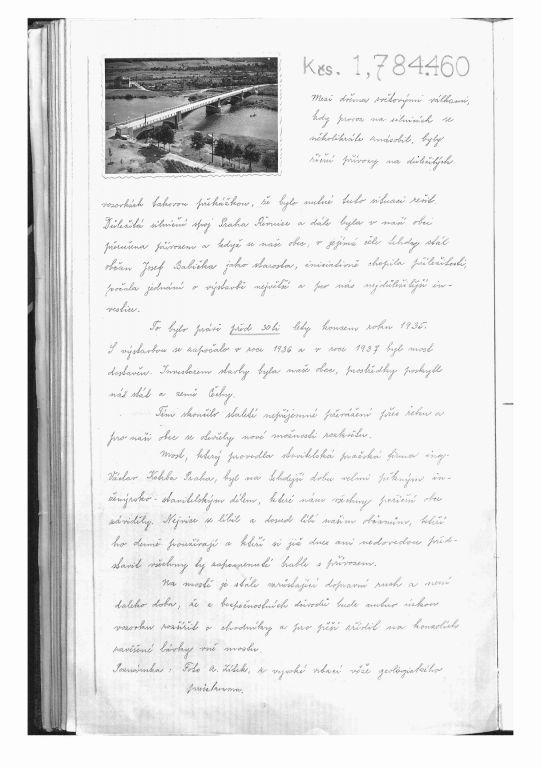 Kčs. 1,784.460
Mezi dvěma světovými válkami,
kdy provoz na silnicích se
několikráte znásobil, byly
říční přívozy na důležitých
vozovkách takovou překážkou, že bylo nutné tuto situaci řešit.
Důležitá silniční spoj Praha Řevnice a dále byla v naší obci
přerušena přívozem a tehdy se naše obec, v jejímž čele tehdy stál
občan Josef Babička jako starosta, iniciativně chopila příležitosti,
počala jednání o výstavbě největší a pro nás nejdůležitější in-
vestice.
To bylo právě před 30ti lety koncem roku 1935.
S výstavbou se započalo v roce 1936 a v roce 1937 byl most
dostavěn. Investorem stavby byla naše obec, prostředky poskytl
náš stát a země Česky.
Tím skončilo staleté nepříjemné převážení přes řeku a
pro naši obec se otevřely nové možnosti rozkvětu.
Most, který provedla stavitelská pražská firma ing.
Václav Praha, byl na tehdejší dobu velmi pěkným in-
ženýrsko-stavitelským dílem, které nám všechny poříční obce
záviděly. Nejvíce se líbil a dosud líbí našim občanům, kteří
ho denně používají a kteří si již dnes ani nedovedou před-
stavit všechny ty zapeklité s přívozem.
Na mostě je stále vzrůstající dopravní ruch a není
daleko doba, že z bezpečnostních důvodů bude nutno
vozovku rozšířit o chodníky a pro pěší zřídit na konsolích
zavěšené lávky vně mostu.
Poznámka: Foto z vysoké věže geologického
průzkumu.